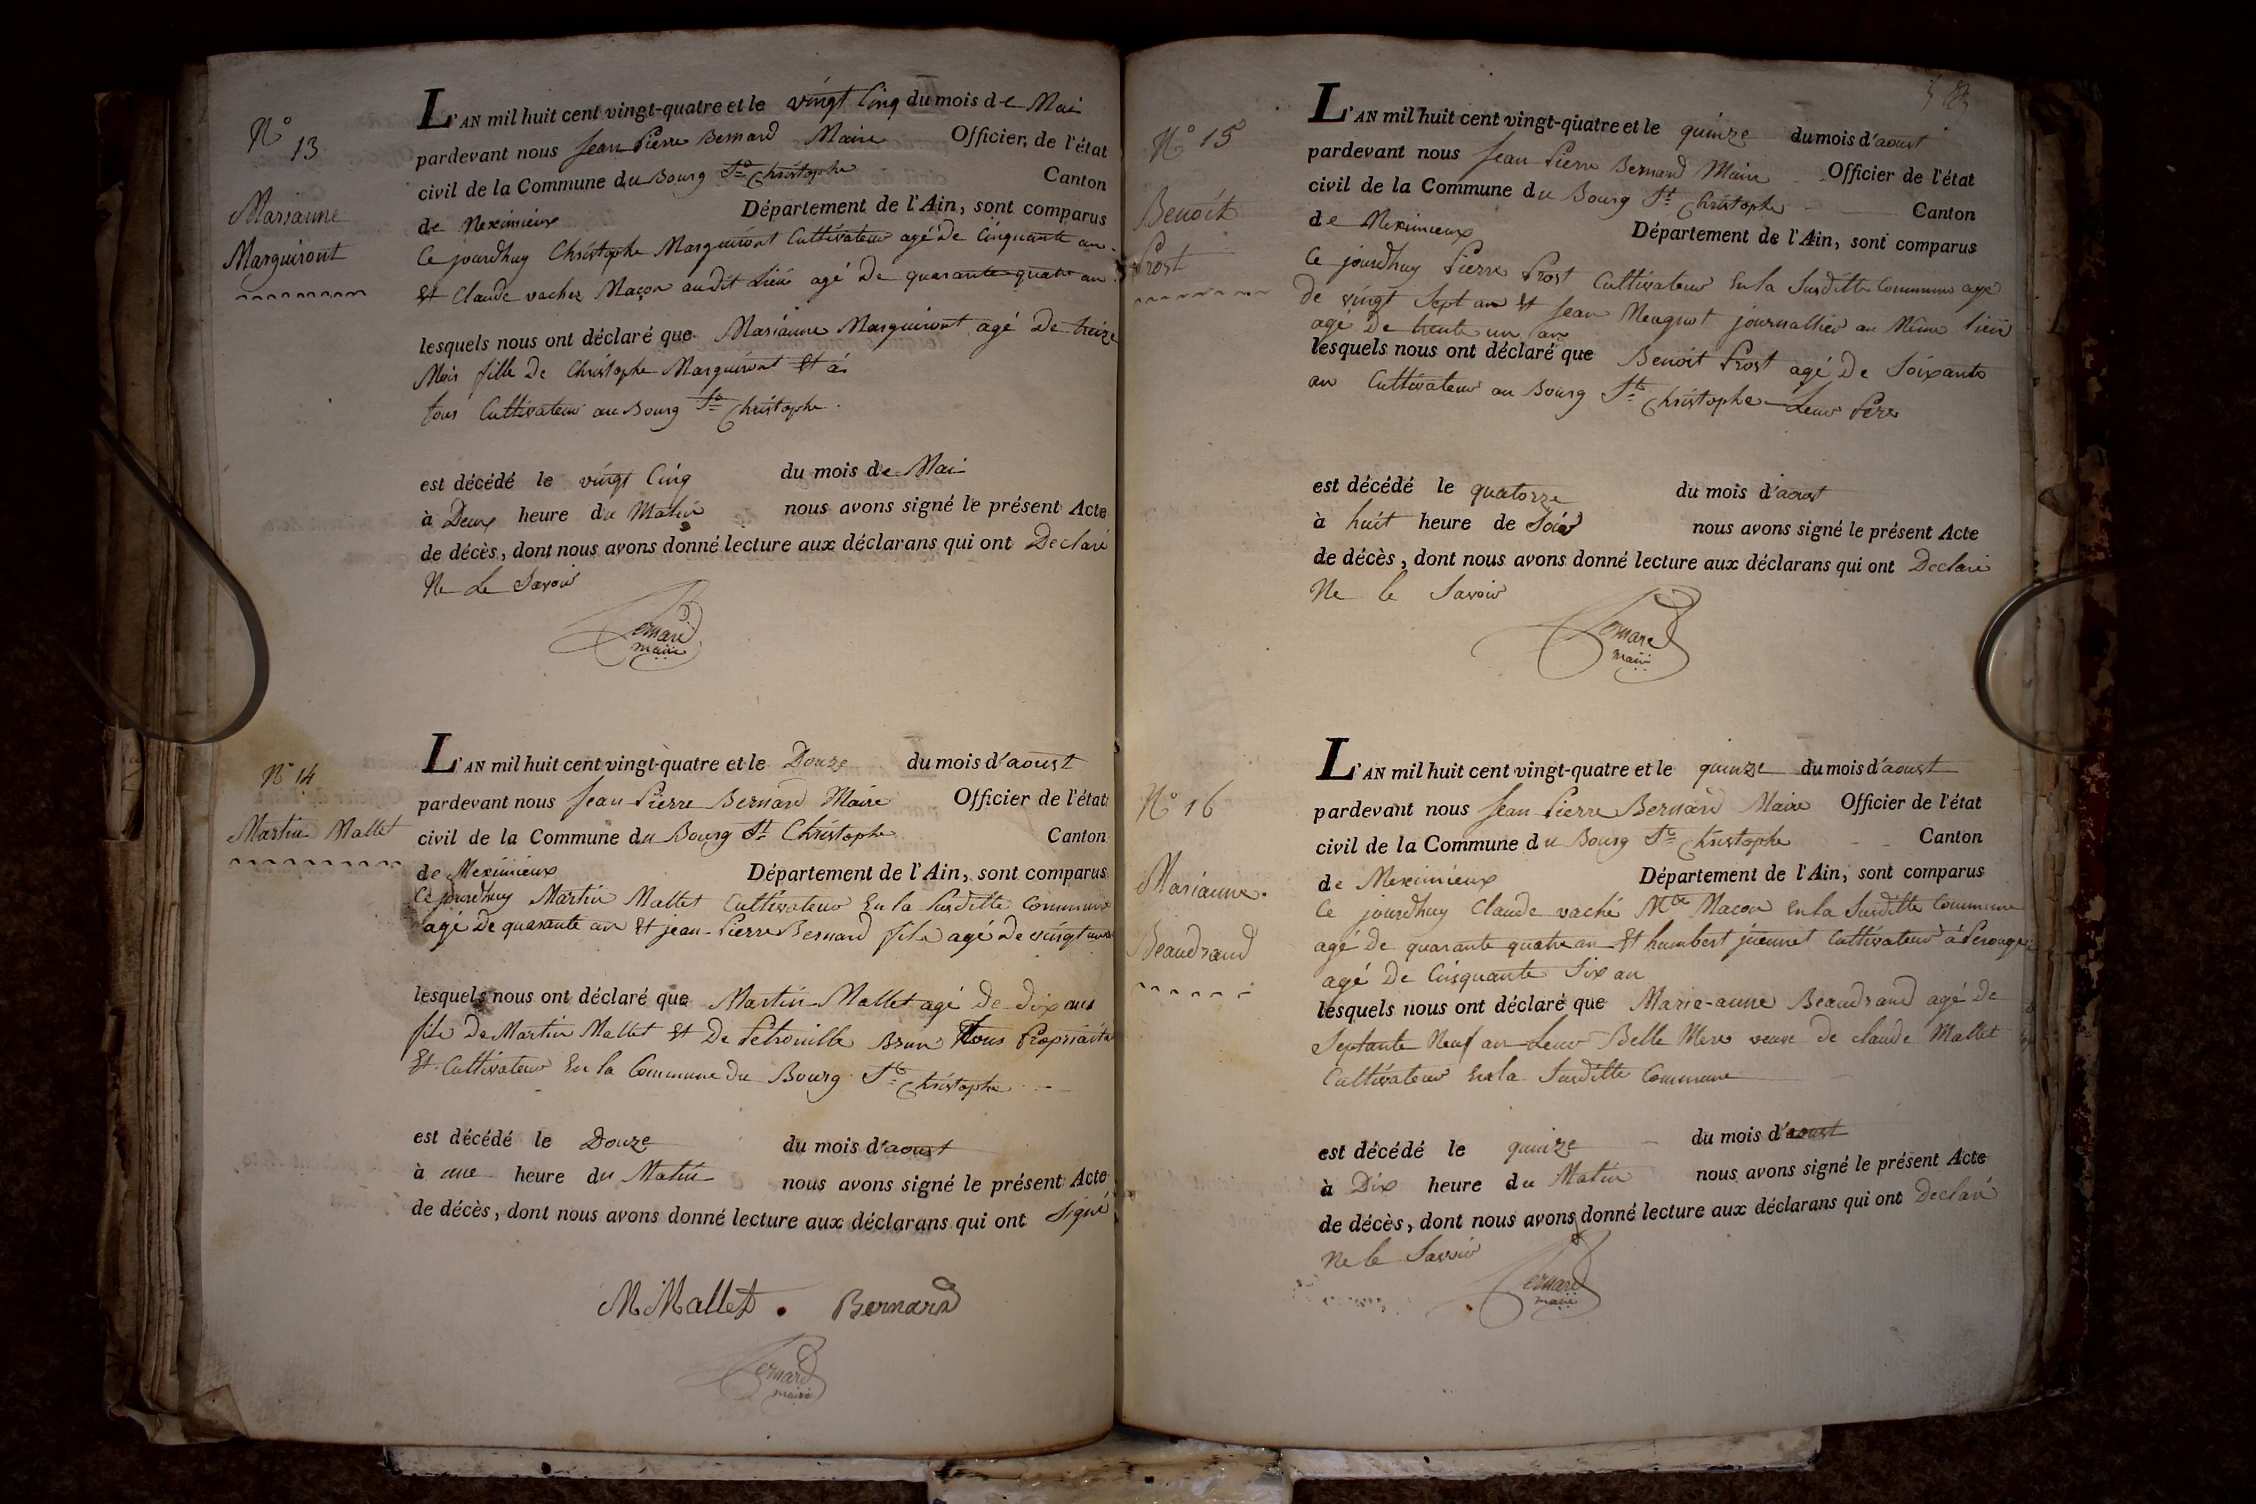 N° 13
Marianne
Marguiront
L'AN mil huit cent vingt-quatre et le vingt Cinq du mois de Mai
pardevant nous Jean Pierre Bernard Maire Officier de l'état
civil de la Commune du Bourg St Christophe Canton
de Meximieux Département de l'Ain, sont comparus
Ce jourdhuy Christophe Marguiront Cultivateur agé De Cinquante an
Et Claude vachez Maçon audit Lieu agé De quarante quatre an
lesquels nous ont déclaré que Marianne Marguiront agé De treize
Mois fille De Christophe Marguiront Et à
tous Cultivateur au Bourg St Christophe
est décédé le vingt Cinq du mois de Mai
à Deux heure du Matin nous avons signé le présent Acte
de décès, dont nous avons donné lecture aux déclarans qui ont Declaré
Ne Le Savoir
Bernard
maire
N° 14
Martin Mallet
L'AN mil huit cent vingt-quatre et le Douze du mois d'aoust
pardevant nous Jean Pierre Bernard Maire Officier de l'état
civil de la Commune du Bourg St Christophe Canton
de Meximieux Département de l'Ain, sont comparus
Ce jourdhuy Martin Mallet Cultivateur En la Susditte Commune
agé De quarante an Et jean-Pierre Bernard fils agé De vingt
lesquels nous ont déclaré que Martin Mallet agé de dix ans
fils De Martin Mallet Et De Petronille Brun Tous Propriaitaire
Et Cultivateur En la Commune du Bourg St Christophe
est décédé le Douze du mois d'aoust
à une heure du Matin nous avons signé le présent Acte
de décès, dont nous avons donné lecture aux déclarans qui ont signé
M Mallet. Bernard
Bernard
maire
N° 15
Benoit
Prost
L'AN mil huit cent vingt-quatre et le quinze du mois d'aoust
pardevant nous Jean Pierre Bernard Maire Officier de l'état
civil de la Commune du Bourg St Christophe Canton
de Meximieux Département de l'Ain, sont comparus
Ce jourdhuy Pierre Prost Cultivateur En la Susditte Commune agé
De vingt Sept an Et Jean Meugnot journallier au Même lieu
agé De trente un an
lesquels nous ont déclaré que Benoit Prost agé De Soixante
an Cultivateur au Bourg St Christophe Leur Pere
est décédé le quatorze du mois d'aoust
à huit heure de Soir nous avons signé le présent Acte
de décès, dont nous avons donné lecture aux déclarans qui ont Declaré
Ne le Savoir
Bernard
maire
N° 16
Marianne
Beaudrand
L'AN mil huit cent vingt-quatre et le quinze du mois d'aoust
pardevant nous Jean Pierre Bernard Maire Officier de l'état
civil de la Commune du Bourg St Christophe Canton
de Meximieux Département de l'Ain, sont comparus
Ce jourdhuy Claude vaché Mtre Macon En la Susditte Commune
agé de quarante quatre an Et humbert jueunet Cultivateur à Perouge
agé De Cinquante Six an
lesquels nous ont déclaré que Marie-anne Beaudrand agé de
Septante Neuf an Leur Belle Mere veuve de claude Mallet
Cultivateur En la Susditte Commune
est décédé le quinze du mois d'aoust
à Dix heure du Matin nous avons signé le présent Acte
de décès, dont nous avons donné lecture aux déclarans qui ont Declaré
Ne le Savoir
Bernard
maire